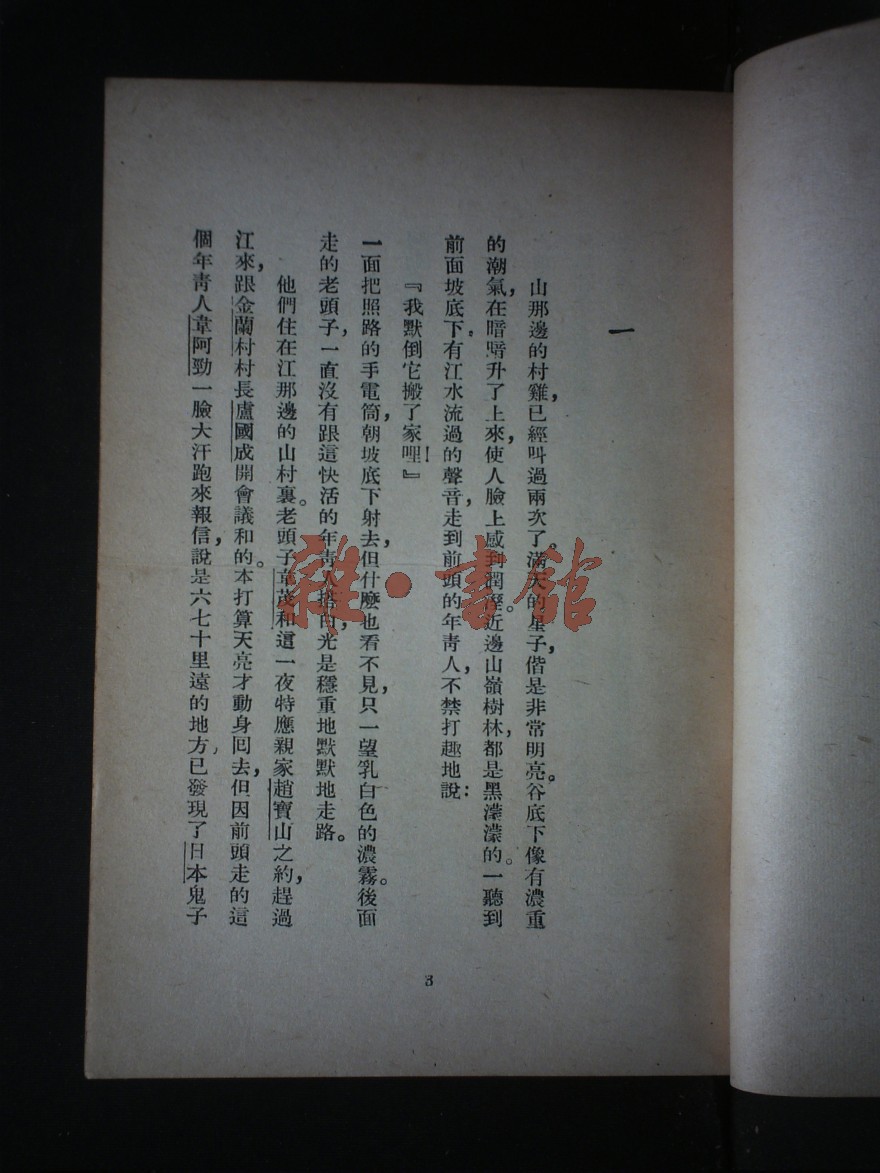 一
山那邊的村雞，已經叫過兩次了。滿天的星子，偕是非常明亮。谷底下像有濃重
的潮氣，在暗暗升了上來，使人臉上感到潤溼。近邊山嶺樹林，都是黑濛濛的。一聽到
前面坡底下。有江水流過的聲音，走到前頭的年靑人，不禁打趣地說：
『我默倒它搬了家哩！』
一面把照路的手電筒，朝坡底下射去，但什麼也看不見，只一望乳白色的濃霧。後面
走的老頭子，一直沒有跟這快活的年靑人搭白，光是穩重地默默地走路。
他們住在江那邊的山村裏。老頭子韋茂和這一夜特應親家趙寶山之約，趕過
江來，跟金蘭村村長盧國成開會議和的。本打算天亮才動身回去，但因前頭走的這
個年靑人韋阿勁一臉大汗跑來報信，說是六七十里遠的地方，已發現了日本鬼子
3
雜·書館